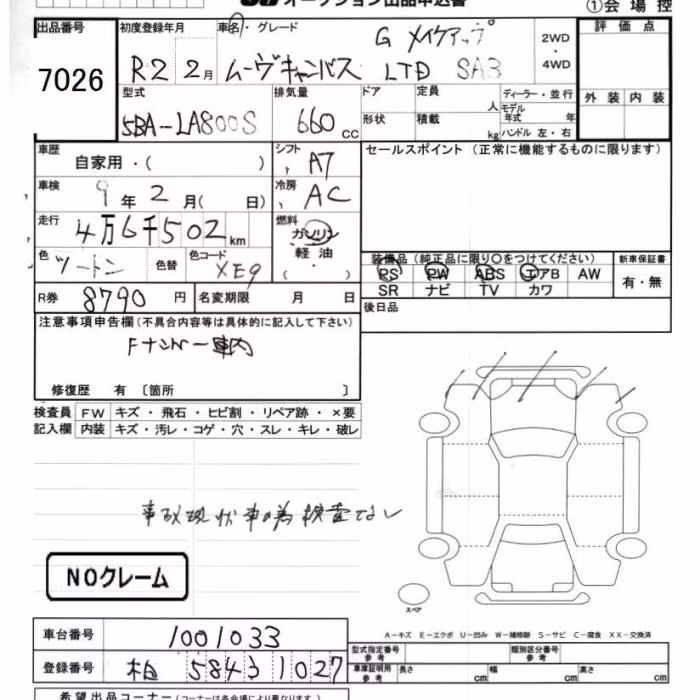 オークション出品申込書 ①会場控
出品番号 7026
初度登録年月 R2 2月
車名・グレード G メイクアップ
ムーヴキャンバス LTD SA3
2WD・4WD
評価点
外装 内装
型式 5BA-LA800S
排気量 660cc
ドア 形状
定員 人
積載 kg
ディーラー・並行
モデル年式 年
ハンドル 左・右
車歴 自家用・( )
シフト A7
セールスポイント (正常に機能するものに限ります)
車検 9年2月( 日)
冷房 AC
走行 4万6千502km
燃料 ガソリン 軽油 ( ・ )
色 ツートン 色替 色コード XE9
装備品(純正品に限り○をつけてください) 新車保証書
PS PW ABS エアB AW 有・無
SR ナビ TV カワ
R券 8790円 名変期限 月 日
後日品
注意事項申告欄(不具合内容等は具体的に記入して下さい)
Fナンバー車内
修復歴 有 〔箇所 〕
検査員 FW キズ・飛石・ヒビ割・リペア跡・×要
記入欄 内装 キズ・汚レ・コゲ・穴・スレ・キレ・破レ
事故現状車の為検査なし
NOクレーム
スペア
A-キズ E-エクボ U-凹み W-補修跡 S-サビ C-腐食 XX-交換済
車台番号 1001033
型式指定番号 参考 類別区分番号 参考
登録番号 柏 584 う 1027
車庫証明用 参考 長さ cm 幅 cm 高さ cm
希望出品コーナー(コーナーは各会場により異なります。)